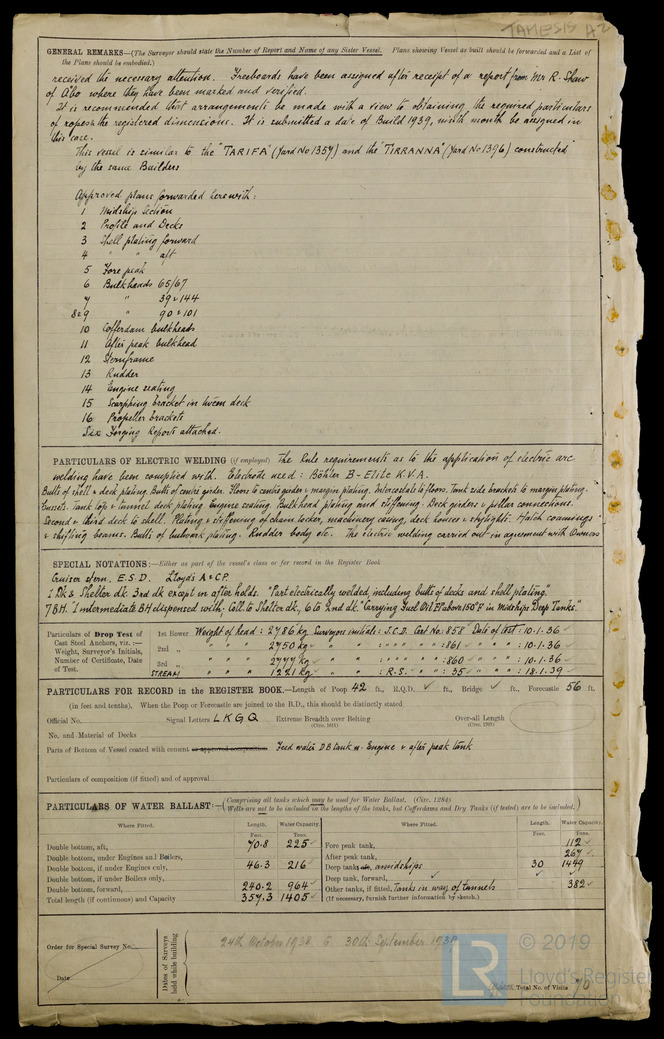 TAMESIS A2
GENERAL REMARKS—(The Surveyor should state the Number of Report and Name of any Sister Vessel. Plans showing Vessel as built should be forwarded and a List of
the Plans should be embodied.)
received the necessary attention. Freeboards have been assigned after receipt of a report from Mr R. Shaw
of Åbo where they have been marked and verified.
It is recommended that arrangements be made with a view to obtaining the required particulars
of ropes & the registered dimensions. It is submitted a date of Build 1939, ninth month be assigned in
this case.
This vessel is similar to the "TARIFA" (Yard No 1357) and the "TIRRANNA" (Yard No 1396) constructed
by the same Builders
Approved plans forwarded herewith:
1 Midship Section
2 Profile and Decks
3 Shell plating forward
4 " " aft
5 Fore peak
6 Bulkheads 65/67
7 " 39 & 144
8 & 9 " 90 & 101
10 Cofferdam bulkheads
11 After peak bulkhead
12 Sternframe
13 Rudder
14 Engine seating
15 Scarphing bracket in tween deck
16 Propeller brackets
Six Forging Reports attached.
PARTICULARS OF ELECTRIC WELDING (if employed) The Rule requirements as to the application of electric arc
welding have been complied with. Electrode used: Böhler B-Elite K.V.A.
Butts of shell & deck plating. Butts of centre girder. Floors to centre girder & margin plating. Intercostals to floors. Tank side brackets to margin plating.
Gussets. Tank top & tunnel deck plating. Engine seating. Bulkhead plating and stiffening. Deck girders & pillar connections.
Second & third deck to shell. Plating & stiffening of chain locker, machinery casing, deck houses & skylights. Hatch coamings
& shifting beams. Butts of bulwark plating. Rudder body etc. The electric welding carried out in agreement with Owners
SPECIAL NOTATIONS:—Either as part of the vessel's class or for record in the Register Book
Cruiser stern. E.S.D. Lloyd's A & CP.
1 Dk & Shelter dk. 3rd dk except in after holds. "Part electrically welded, including butts of decks and shell plating".
7 BH. "1 intermediate BH dispensed with; Coll. to Shelter dk, 6 to 2nd dk." "Carrying Fuel Oil F.P. above 150°F in Midships Deep Tanks."
Particulars of Drop Test of
Cast Steel Anchors, viz. :—
Weight, Surveyor's Initials,
Number of Certificate, Date
of Test.
1st Bower Weight of head: 2786 kg Surveyors initials: J.C.D. Cert. No: 858 Date of test: 10.1.36
2nd " " " " : 2750 kg " " " " " : 861 " " " : 10.1.36
3rd " " " " : 2777 kg " " " " " : 860 " " " : 10.1.36
STREAM " " " : 1221 kg " " : R.S. " " : 35 " " " : 18.1.39
PARTICULARS FOR RECORD in the REGISTER BOOK.—Length of Poop 42 ft., R.Q.D. ✓ ft., Bridge ✓ ft., Forecastle 56 ft.
(in feet and tenths). When the Poop or Forecastle are joined to the B.D., this should be distinctly stated
Official No. Signal Letters L K G Q Extreme Breadth over Belting Over-all Length
(Circ. 1611) (Circ. 1703)
No. and Material of Decks
Parts of Bottom of Vessel coated with cement or approved composition Feed water DB tank in Engine & after peak tank
Particulars of composition (if fitted) and of approval
PARTICULARS OF WATER BALLAST:—(Comprising all tanks which may be used for Water Ballast. (Circ. 1284)
Wells are not to be included in the lengths of the tanks, but Cofferdams and Dry Tanks (if tested) are to be included.)
Where Fitted. Length. Water Capacity. Where Fitted. Length. Water Capacity.
Feet. Tons. Feet. Tons.
Double bottom, aft, 70.8 225 Fore peak tank, 112
Double bottom, under Engines and Boilers, After peak tank, 267
Double bottom, if under Engines only, 46.3 216 Deep tank, aft, amidships 30 1449
Double bottom, if under Boilers only, Deep tank, forward, ✓ ✓
Double bottom, forward, 240.2 964 Other tanks, if fitted, Tanks in way of tunnels 382
Total length (if continuous) and Capacity 357.3 1405 (If necessary, furnish further information by sketch.)
Order for Special Survey No.
Date
Dates of Surveys
held while building
24th October 1938 to 30th September 1939
Total No. of Visits 70
LR © 2019
Lloyd's Register
Foundation